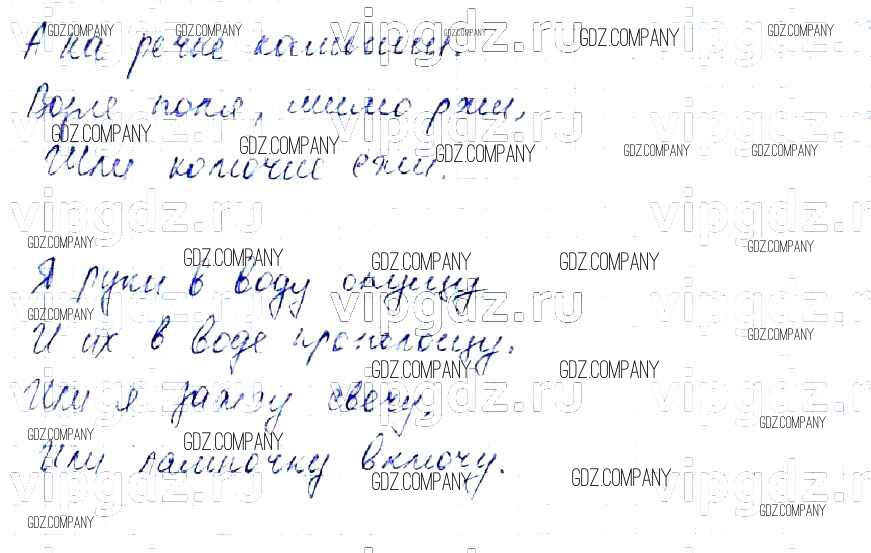 А на речке камыши.
Возле поля, мимо ржи,
Шли колючие ежи.
Я руки в воду опущу
И их в воде прополощу.
Или я зажгу свечу,
Или лампочку включу.